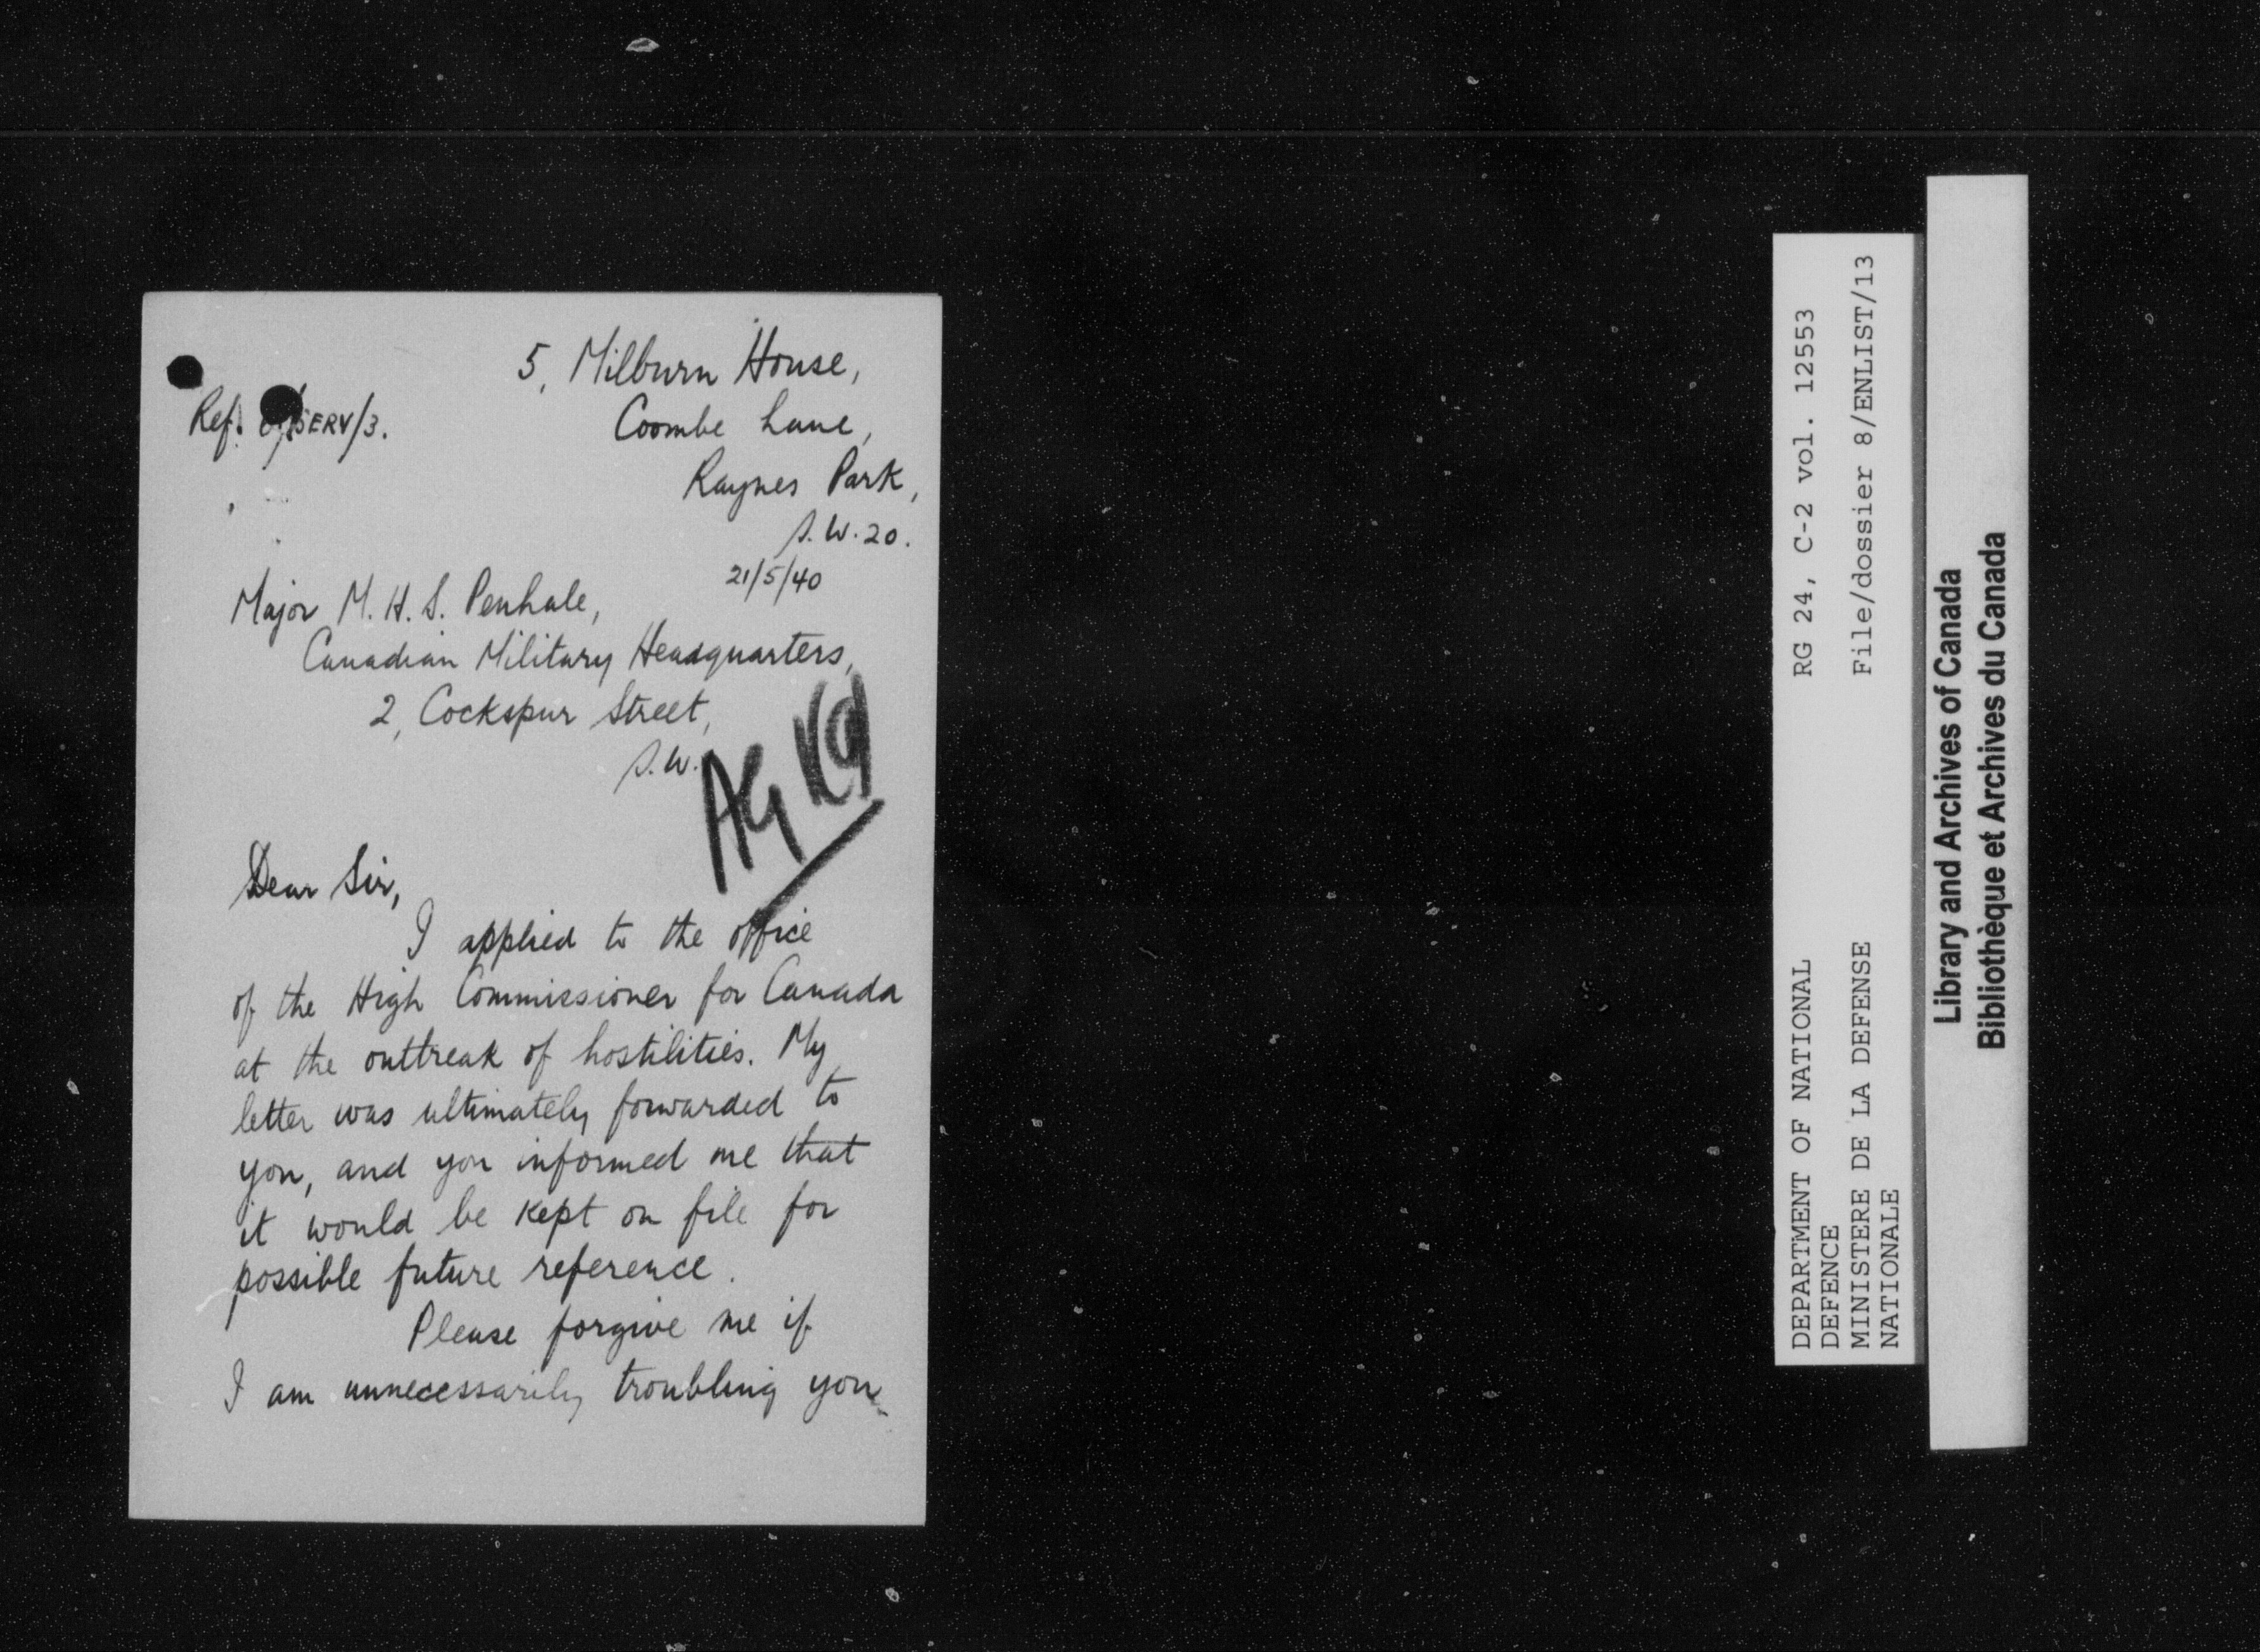 5, Milburn House,
Ref. SERV/3.
Coombe Lane,
Raynes Park,
S.W.20.
21/5/40
Major M. H. S. Penhale,
Canadian Military Headquarters,
2, Cockspur Street,
S.W.
AG
Dear Sir,
I applied to the office
of the High Commissioner for Canada
at the outbreak of hostilities. My
letter was ultimately forwarded to
you, and you informed me that
it would be kept on file for
possible future reference.
Please forgive me if
I am unnecessarily troubling you
DEPARTMENT OF NATIONAL
DEFENCE
MINISTERE DE LA DEFENSE
NATIONALE
RG 24, C-2 vol. 12553
File/dossier 8/ENLIST/13
Library and Archives of Canada
Bibliothèque et Archives du Canada